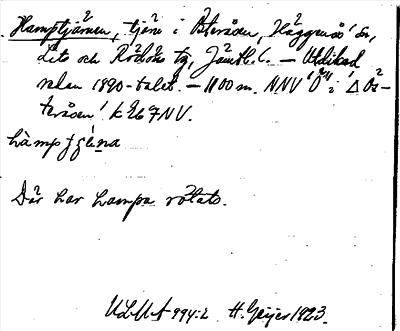 Hamptjärnen, tjärn i Österåsen, Häggenås' sn,
Lits och Rödöns tg, Jämtl. l. – Utdikad
sedan 1890-talet. – 1100 m. NNV
teråsen' k 26 7 NV.
hàmptjǽna
Där har hampa rötats.
ULMA 994:2 H. Geijer 1923.